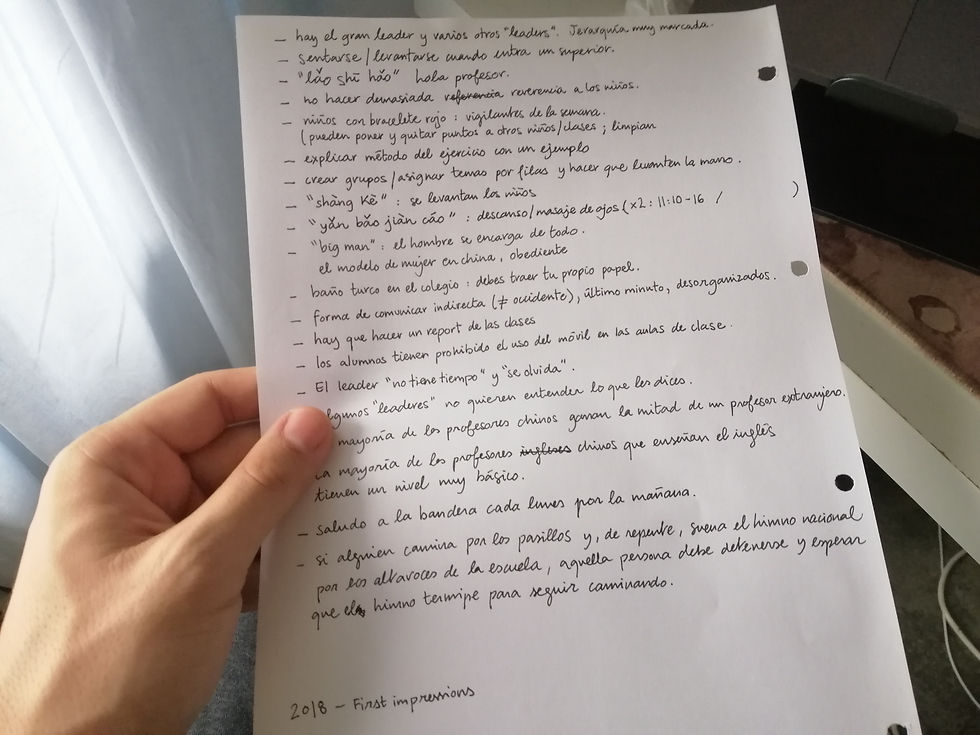 — hay el gran leader y varios otros "leaders". Jerarquía muy marcada.
— sentarse/levantarse cuando entra un superior.
— "lǎo shī hǎo" hola profesor.
— no hacer demasiada referencia reverencia a los niños.
— niños con bracelete rojo : vigilantes de la semana.
(pueden poner y quitar puntos a otros niños/clases ; limpian
— explicar método del ejercicio con un ejemplo
— crear grupos/asignar temas por filas y hacer que levanten la mano.
— "shàng Kè" : se levantan los niños
— "yǎn bǎo jiàn cāo" : descanso/masaje de ojos (x2 : 11:10-16 / )
"big man" : el hombre se encarga de todo.
el modelo de mujer en china, obediente
— baño turco en el colegio : debes traer tu propio papel.
— forma de comunicar indirecta (≠ occidente), último minuto, desorganizados.
— hay que hacer un report de las clases
— los alumnos tienen prohibido el uso del móvil en las aulas de clase.
— El leader "no tiene tiempo" y "se olvida".
lgunos "leaderes" no quieren entender lo que les dices.
mayoría de los profesores chinos ganan la mitad de un profesor extranjero.
La mayoría de los profesores ingleses chinos que enseñan el inglés
tienen un nivel muy básico.
— saludo a la bandera cada lunes por la mañana.
— si alguien camina por los pasillos y, de repente, suena el himno nacional
por los altavoces de la escuela, aquella persona debe detenerse y esperar
que el himno termine para seguir caminando.
2018 — First impressions